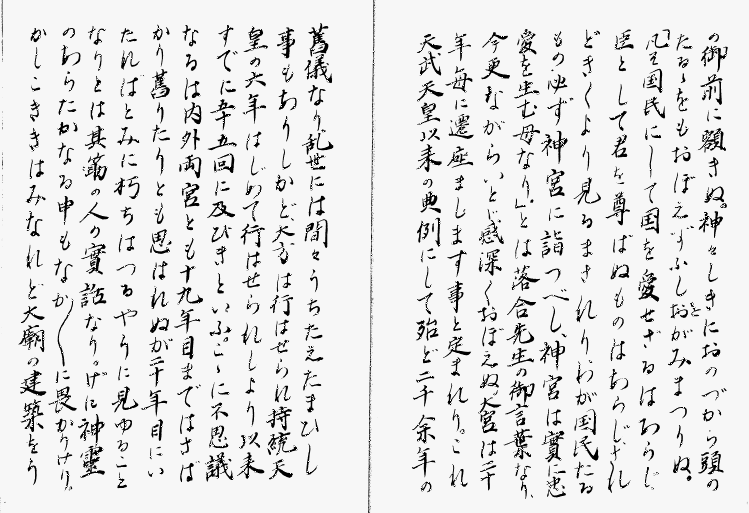 の御前に額きぬ。神々しきにおのづから頭の
たるゝをもおぼえずふしをがみまつりぬ。
「凡そ国民にして国を愛せざるはあらじ、
臣として君を尊ばぬものはあらじ、され
どきくより見るまされり、わが国民たる
もの必ず神宮に詣つべし、神宮は實に忠
愛を生む母なり」とは落合先生の御言葉なり、
今更ながらいとゞ感深くおぼえぬ。大宮は二十
年毎に遷座まします事と定まれり。これ
天武天皇以来の典例にして殆ど二千余年の
舊儀なり、乱世には間々うちたえたまひし
事もありしかど大方は行はせられ持統天
皇の六年はじめて行はせられしより以来
すでに五十五回に及びきといふ。こゝに不思議
なるは内外両宮とも十九年目まではさば
かり舊りたりとも思はれぬが二十年目にい
たればとみに朽ちはつるやうに見ゆること
なりとは其筋の人の實話なり。げに神霊
のあらたかなる申もなか〳〵に畏かりけり。
かしこききはみなれど大廟の建築をう